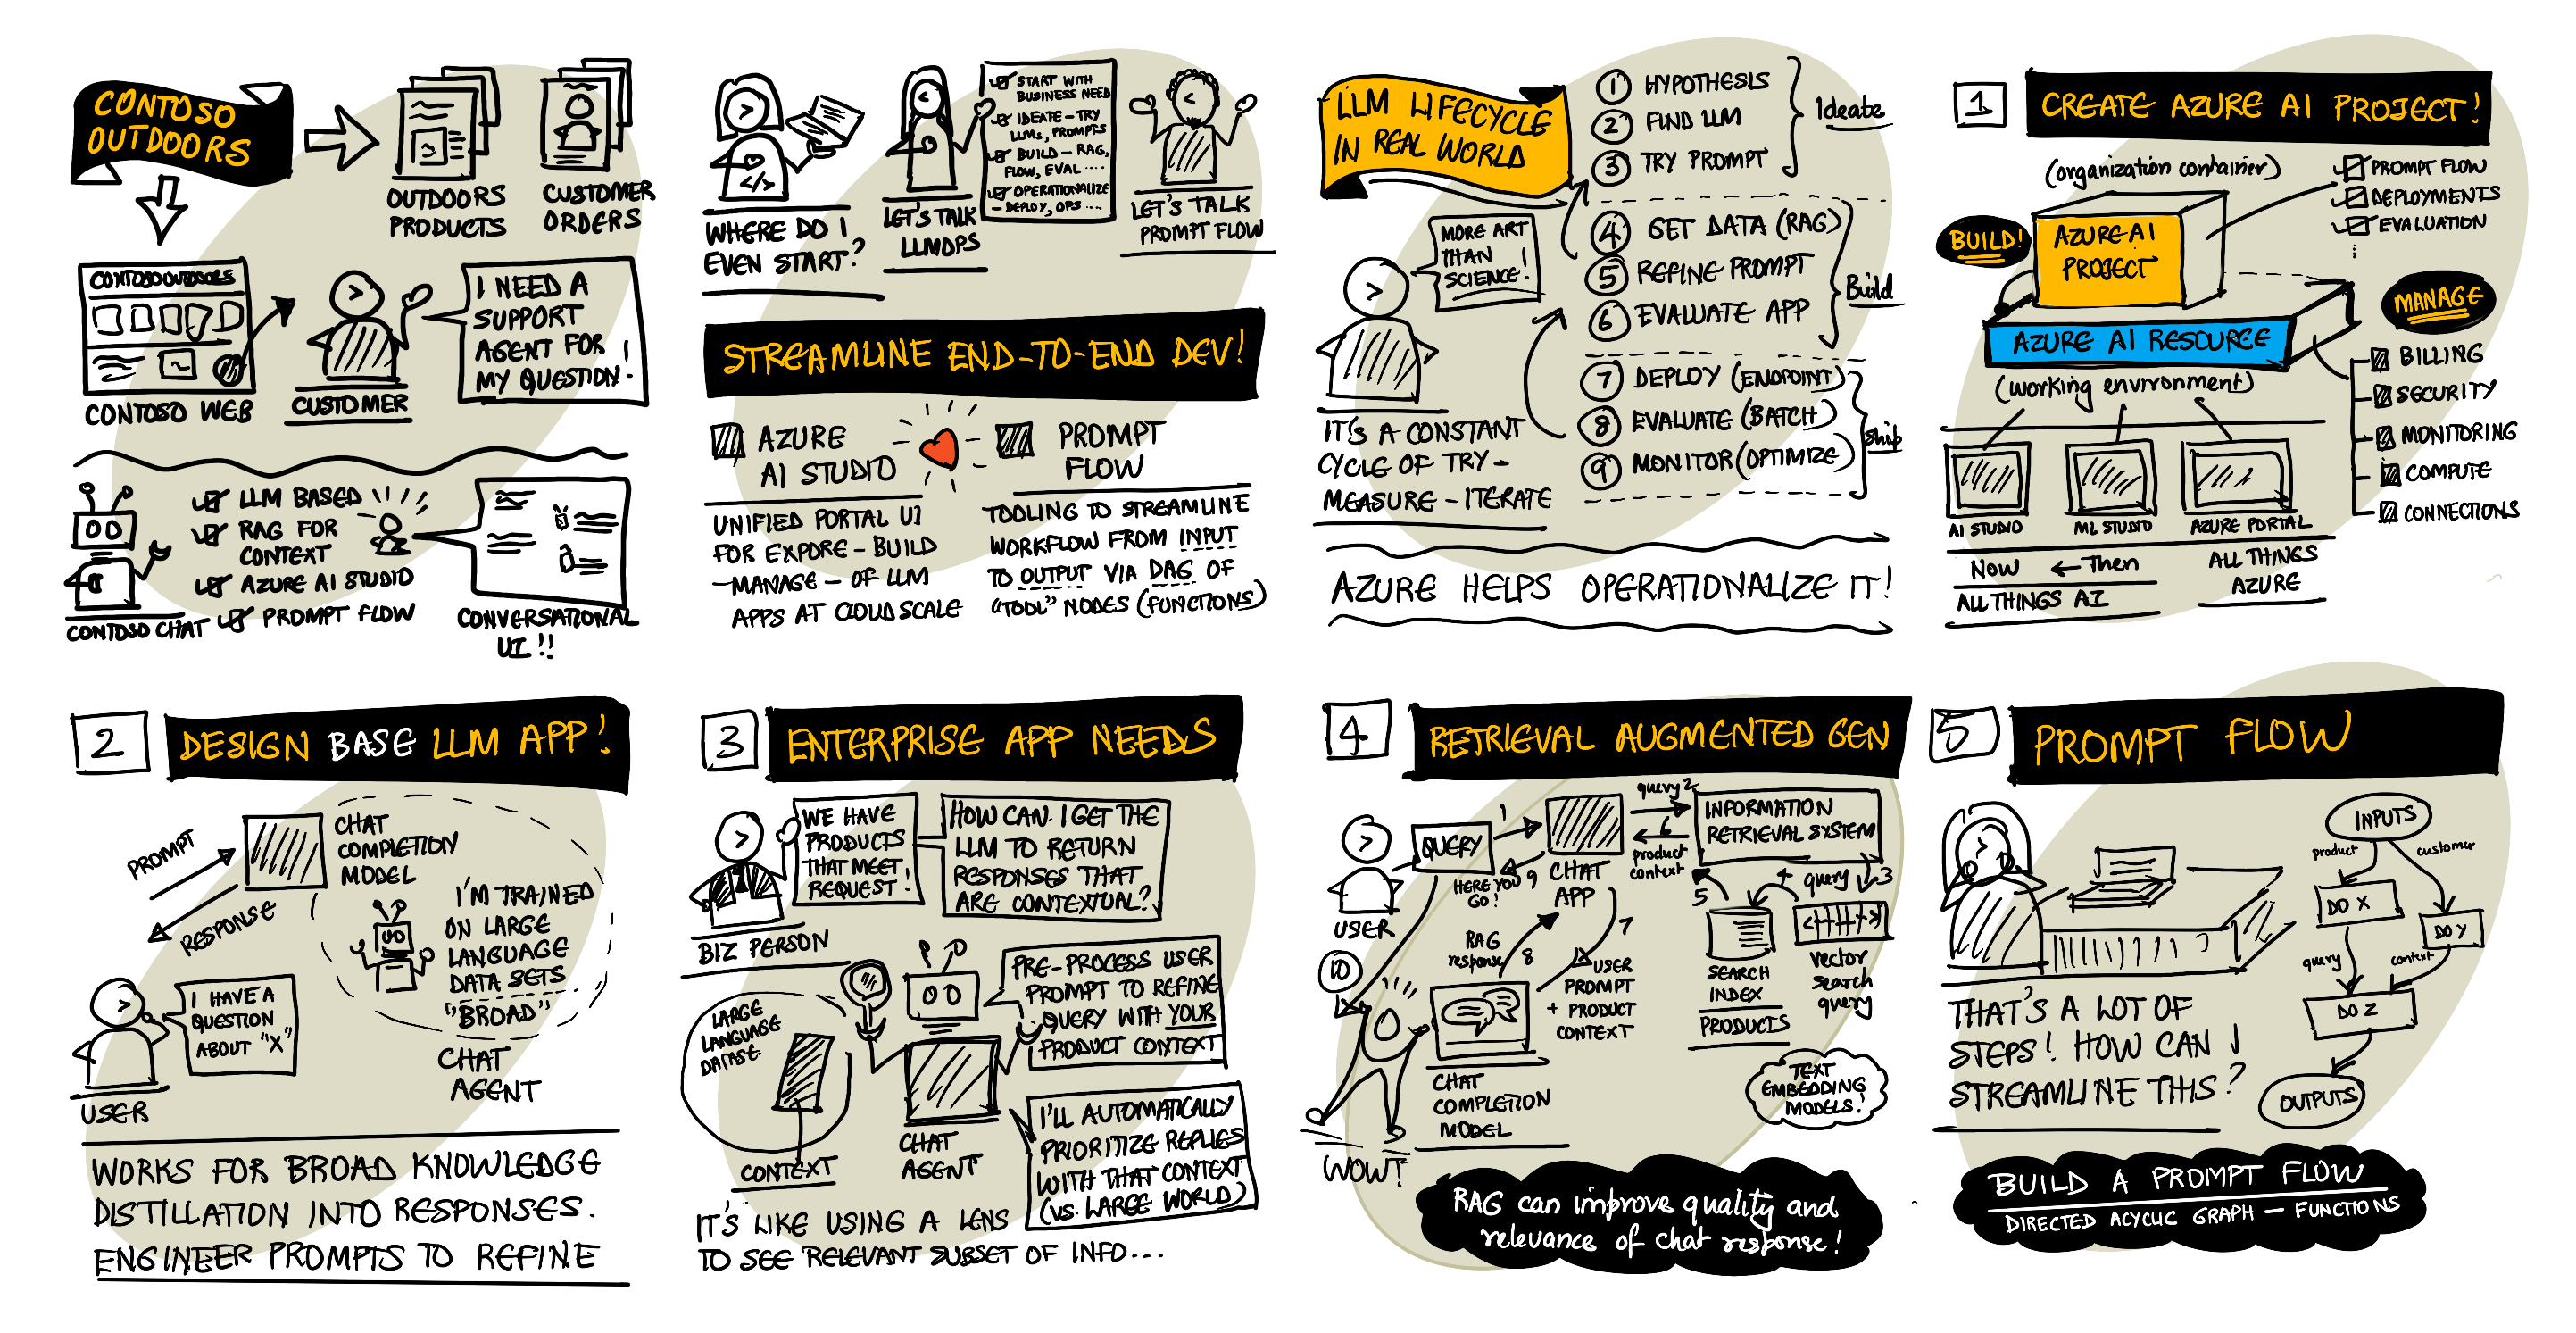 CONTOSO
OUTDOORS
OUTDOORS
PRODUCTS
CUSTOMER
ORDERS
CONTOSO OUTDOORS
CONTOSO WEB
CUSTOMER
I NEED A
SUPPORT
AGENT FOR
MY QUESTION!
LLM BASED
RAG FOR
CONTEXT
AZURE AI STUDIO
PROMPT FLOW
CONTOSO CHAT
CONVERSATIONAL
UI!!
</>
WHERE DO I
EVEN START?
LET'S TALK
LLMOPS
START WITH
BUSINESS NEED
IDEATE - TRY
LLMS, PROMPTS
BUILD - RAG,
FLOW, EVAL ....
OPERATIONALIZE
- DEPLOY, OPS ....
LET'S TALK
PROMPT FLOW
STREAMLINE END-TO-END DEV!
AZURE
AI STUDIO
PROMPT
FLOW
UNIFIED PORTAL UI
FOR EXPORE - BUILD
- MANAGE - OF LLM
APPS AT CLOUD SCALE
TOOLING TO STREAMLINE
WORKFLOW FROM INPUT
TO OUTPUT VIA DAG OF
"TOOL" NODES (FUNCTIONS)
LLM LIFECYCLE
IN REAL WORLD
1 HYPOTHESIS
2 FIND LLM
3 TRY PROMPT
Ideate
4 GET DATA (RAG)
5 REFINE PROMPT
6 EVALUATE APP
Build
7 DEPLOY (ENDPOINT)
8 EVALUATE (BATCH)
9 MONITOR (OPTIMIZE)
Ship
MORE ART
THAN
SCIENCE!
IT'S A CONSTANT
CYCLE OF TRY -
MEASURE - ITERATE
AZURE HELPS OPERATIONALIZE IT!
1
CREATE AZURE AI PROJECT!
(organization container)
PROMPT FLOW
DEPLOYMENTS
EVALUATION
BUILD!
AZURE AI
PROJECT
MANAGE
AZURE AI RESOURCE
(working environment)
BILLING
SECURITY
MONITORING
COMPUTE
CONNECTIONS
AI STUDIO
ML STUDIO
AZURE PORTAL
NOW ← Then
ALL THINGS AI
ALL THINGS
AZURE
2
DESIGN BASE LLM APP!
PROMPT
RESPONSE
CHAT
COMPLETION
MODEL
I'M TRAINED
ON LARGE
LANGUAGE
DATA SETS
"BROAD"
CHAT
AGENT
I HAVE A
QUESTION
ABOUT "X"
USER
WORKS FOR BROAD KNOWLEDGE
DISTILLATION INTO RESPONSES.
ENGINEER PROMPTS TO REFINE
3
ENTERPRISE APP NEEDS
WE HAVE
PRODUCTS
THAT MEET
REQUEST!
HOW CAN I GET THE
LLM TO RETURN
RESPONSES THAT
ARE CONTEXTUAL?
BIZ PERSON
PRE-PROCESS USER
PROMPT TO REFINE
QUERY WITH YOUR
PRODUCT CONTEXT
LARGE
LANGUAGE
DATASET
CONTEXT
CHAT
AGENT
I'LL AUTOMATICALLY
PRIORITIZE REPLIES
WITH THAT CONTEXT
(VS. LARGE WORLD)
IT'S LIKE USING A LENS
TO SEE RELEVANT SUBSET OF INFO...
4
RETRIEVAL AUGMENTED GEN
USER
QUERY
1
CHAT
APP
query 2
INFORMATION
RETRIEVAL SYSTEM
6
product
context
HERE YOU 9
GO!
query 3
4
5
SEARCH
INDEX
PRODUCTS
vector
search
query
TEXT
EMBEDDING
MODELS!
7
USER
PROMPT
+ PRODUCT
CONTEXT
RAG
response 8
10
CHAT
COMPLETION
MODEL
WOW!
RAG can improve quality and
relevance of chat response!
5
PROMPT FLOW
INPUTS
product
customer
DO X
DO Y
query
context
DO Z
OUTPUTS
THAT'S A LOT OF
STEPS! HOW CAN I
STREAMLINE THIS?
BUILD A PROMPT FLOW
DIRECTED ACYCLIC GRAPH - FUNCTIONS